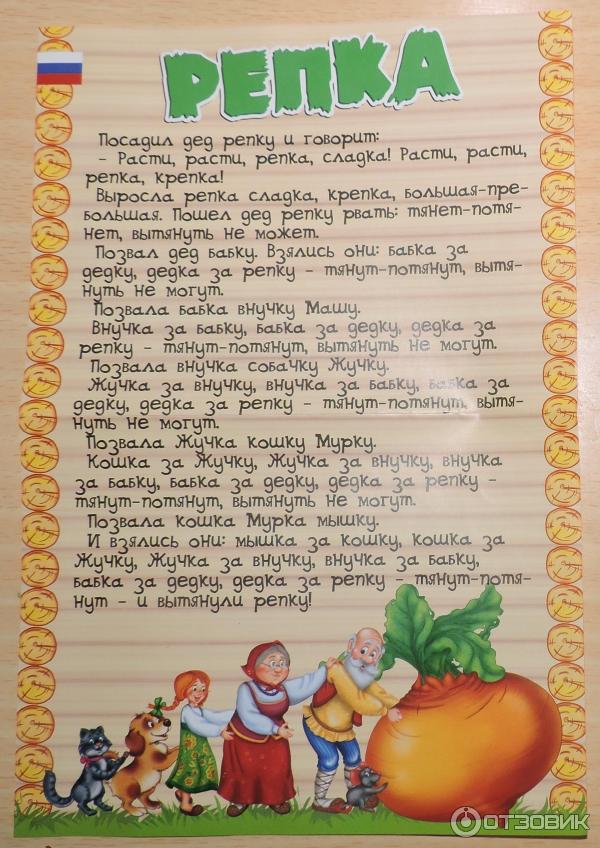 РЕПКА
Посадил дед репку и говорит:
- Расти, расти, репка, сладка! Расти, расти,
репка, крепка!
Выросла репка сладка, крепка, большая-пре-
большая. Пошел дед репку рвать: тянет-потя-
нет, вытянуть не может.
Позвал дед бабку. Взялись они: бабка за
дедку, дедка за репку - тянут-потянут, вытя-
нуть не могут.
Позвала бабка внучку Машу.
Внучка за бабку, бабка за дедку, дедка за
репку - тянут-потянут, вытянуть не могут.
Позвала внучка собачку Жучку.
Жучка за внучку, внучка за бабку, бабка за
дедку, дедка за репку - тянут-потянут, вытя-
нуть не могут.
Позвала Жучка кошку Мурку.
Кошка за Жучку, Жучка за внучку, внучка
за бабку, бабка за дедку, дедка за репку -
тянут-потянут, вытянуть не могут.
Позвала кошка Мурка мышку.
И взялись они: мышка за кошку, кошка за
Жучку, Жучка за внучку, внучка за бабку,
бабка за дедку, дедка за репку - тянут-потя-
нут - и вытянули репку!
ОТЗОВИК